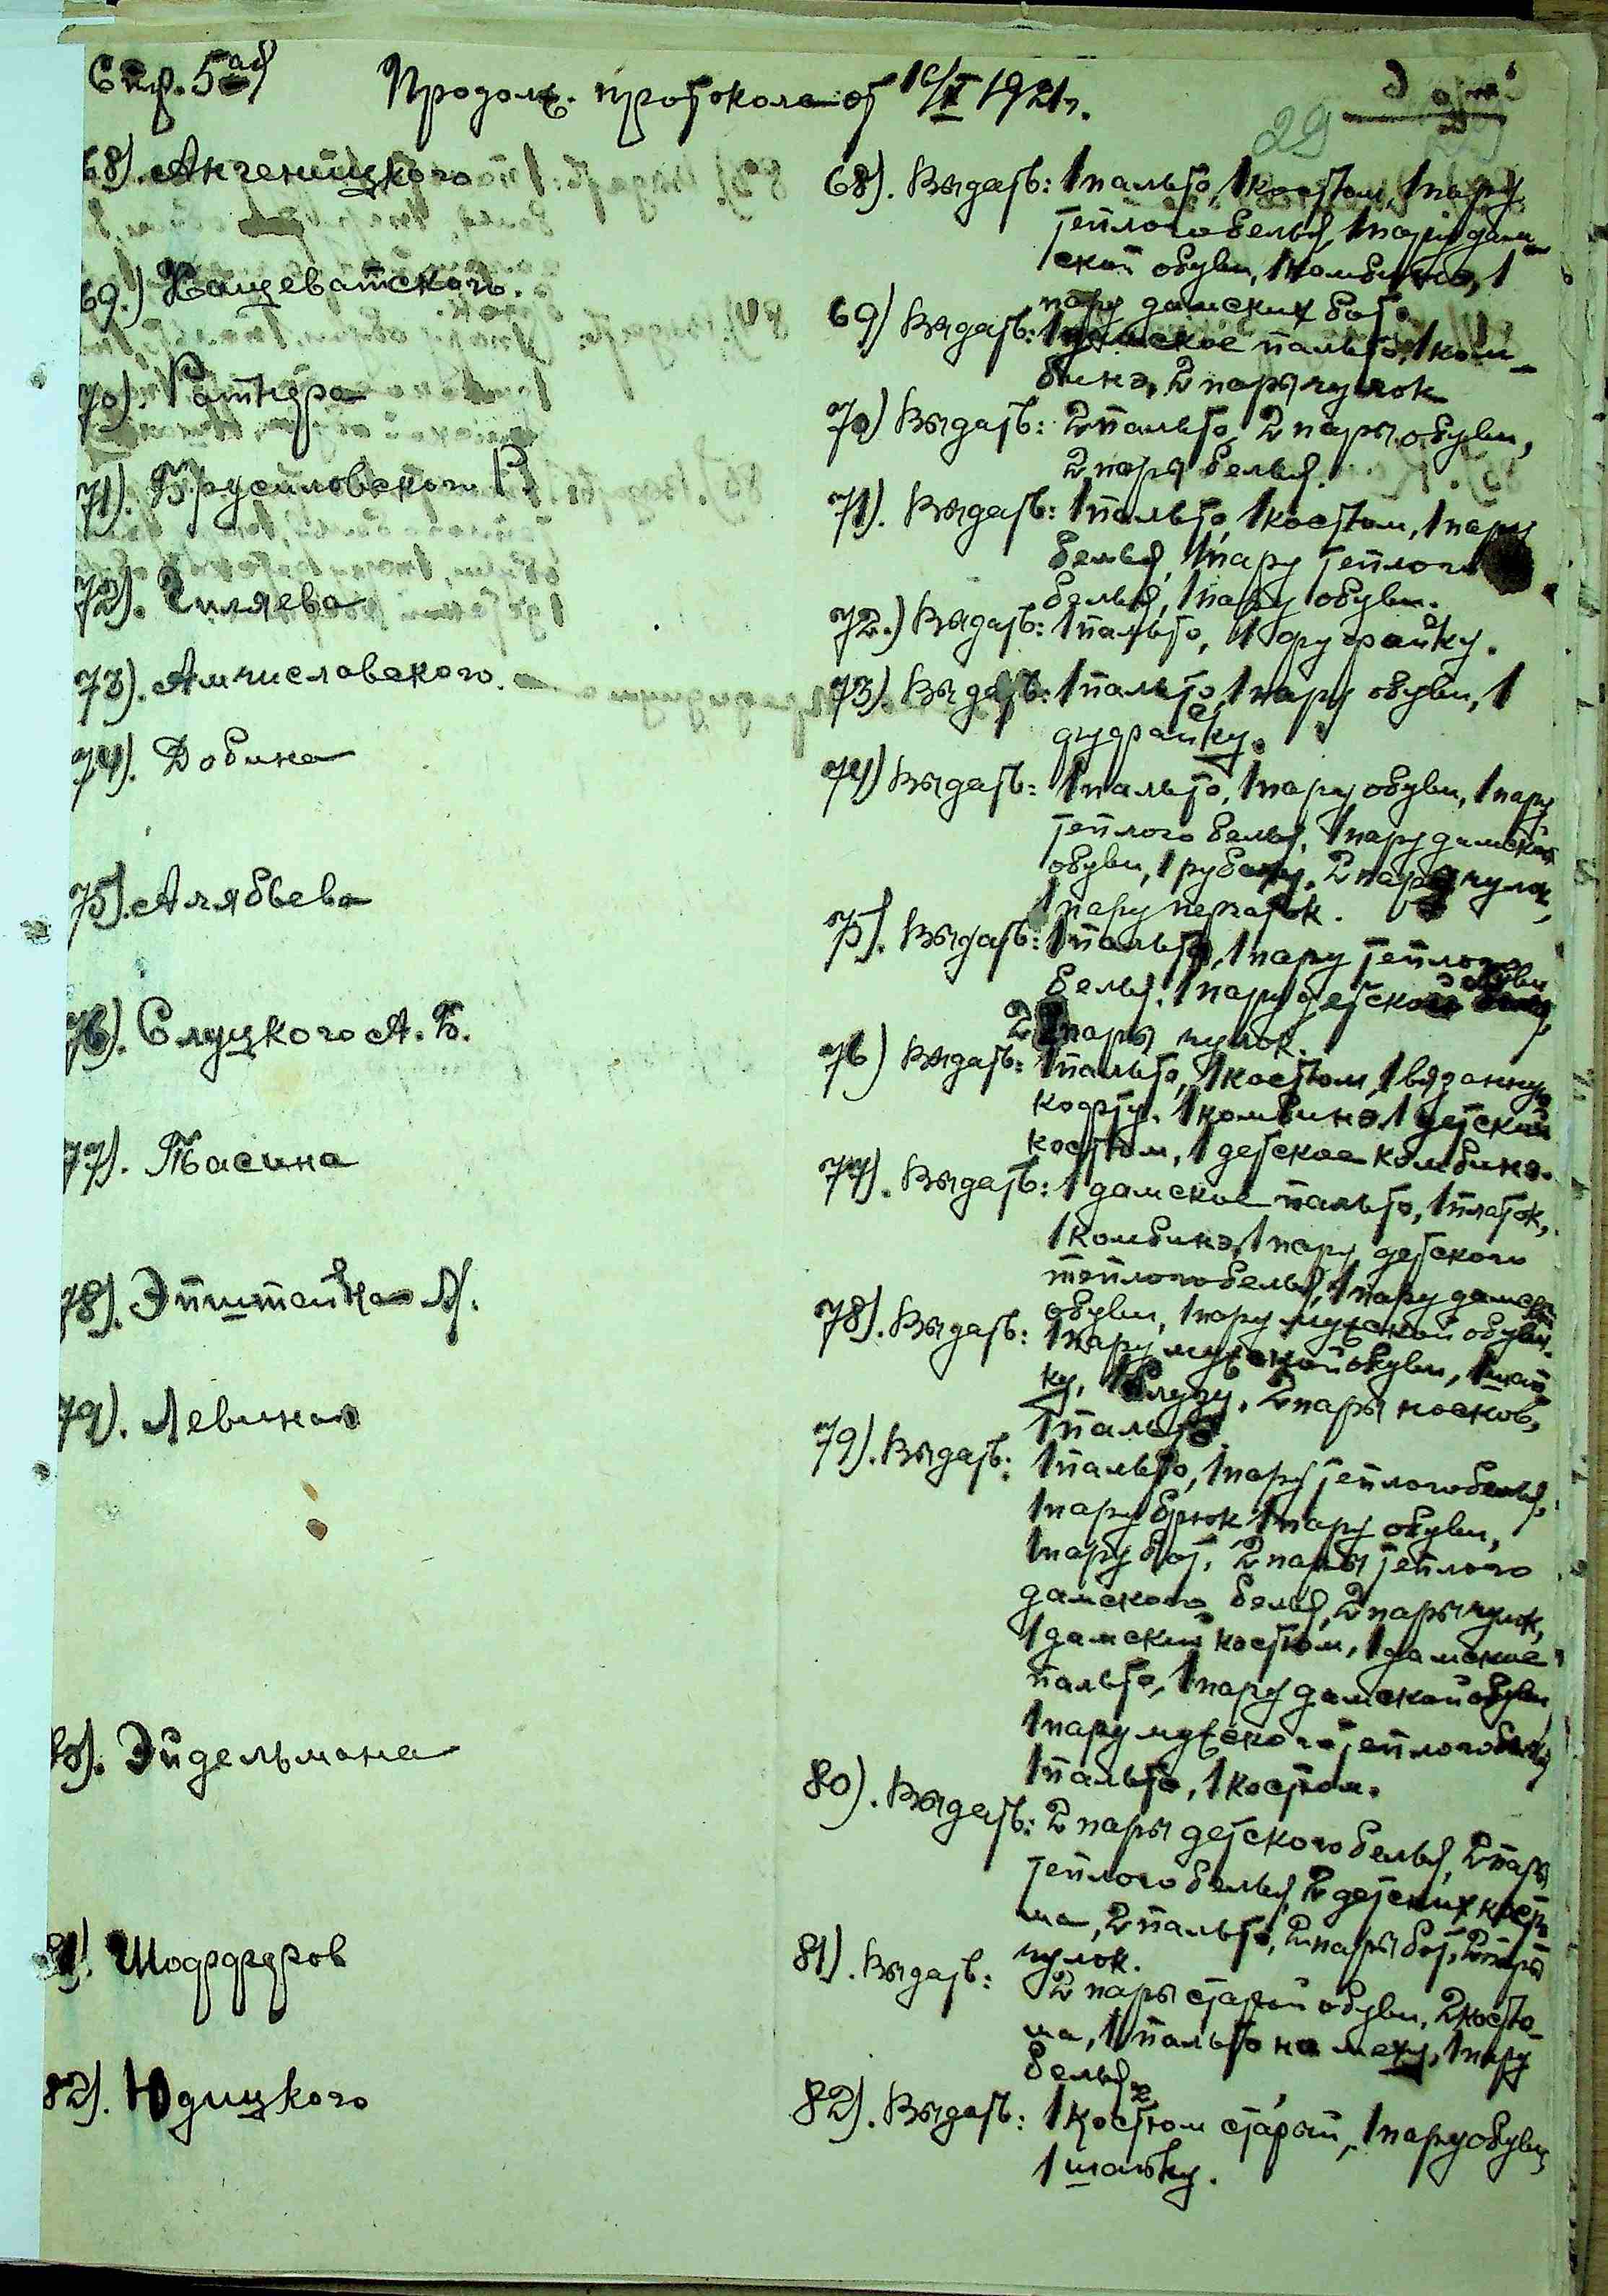 Стр. 5ая
Продолж. протокола от 10/I 1921 г.
29
68). Ангеницкого
68). Выдать: 1 пальто, 1 костюм, 1 пару
теплого белья, 1 пару дам-
ской обуви, 1 комбинэ, 1
пару дамских бот.
69.) Кощеватского.
69) Выдать: 1 дамское пальто, 1 ком-
бинэ, 2 пары чулок
70). Ратнера
70) Выдать: 2 пальто, 2 пары обуви,
2 пары белья.
71). Брусиловского Р.
71). Выдать: 1 пальто, 1 костюм, 1 пару
белья, 1 пару теплого
белья, 1 пару обуви.
72). Гиляева
72.) Выдать: 1 пальто, 1 фуфайку.
73). Амчиславского.
73). Выдать: 1 пальто, 1 пару обуви, 1
фуфайку.
74). Добина
74) Выдать: 1 пальто, 1 пару обуви, 1 пару
теплого белья, 1 пару дамской
обуви, 1 рубаху, 2 пары чулок,
1 пару перчаток.
75). Алябьева
75). Выдать: 1 пальто, 1 пару теплого
белья, 1 пару детской обуви
2 пары чулок.
76). Слуцкого А. Б.
76) Выдать: 1 пальто, 1 костюм, 1 вязанную
кофту, 1 комбинэ, 1 детский
костюм, 1 детское комбинэ.
77). Тасина
77). Выдать: 1 дамское пальто, 1 платок,
1 комбинэ, 1 пару детского
теплого белья, 1 пару дамской
обуви, 1 пару мужской обуви.
78). Эпштейна А.
78). Выдать: 1 пару мужской обуви, 1 шап-
ку, 1 блузу, 2 пары носков,
1 пальто.
79). Левина
79). Выдать: 1 пальто, 1 пару теплого белья,
1 пару брюк, 1 пару обуви,
1 пару бот, 2 пары теплого
дамского белья, 2 пары чулок,
1 дамский костюм, 1 дамское
пальто, 1 пару дамской обуви
1 пару мужского теплого белья
1 пальто, 1 костюм.
80). Эйдельмана
80). Выдать: 2 пары детского белья, 2 пары
теплого белья, 2 детских костю
ма, 2 пальто, 2 пары бот, 2 пары
чулок.
81). Шоффферов
81). Выдать: 2 пары старой обуви, 2 костю-
ма, 1 пальто на меху, 1 пару
белья.
82). Юдицкого
82). Выдать: 1 костюм старый, 1 пару обуви
1 шапку.